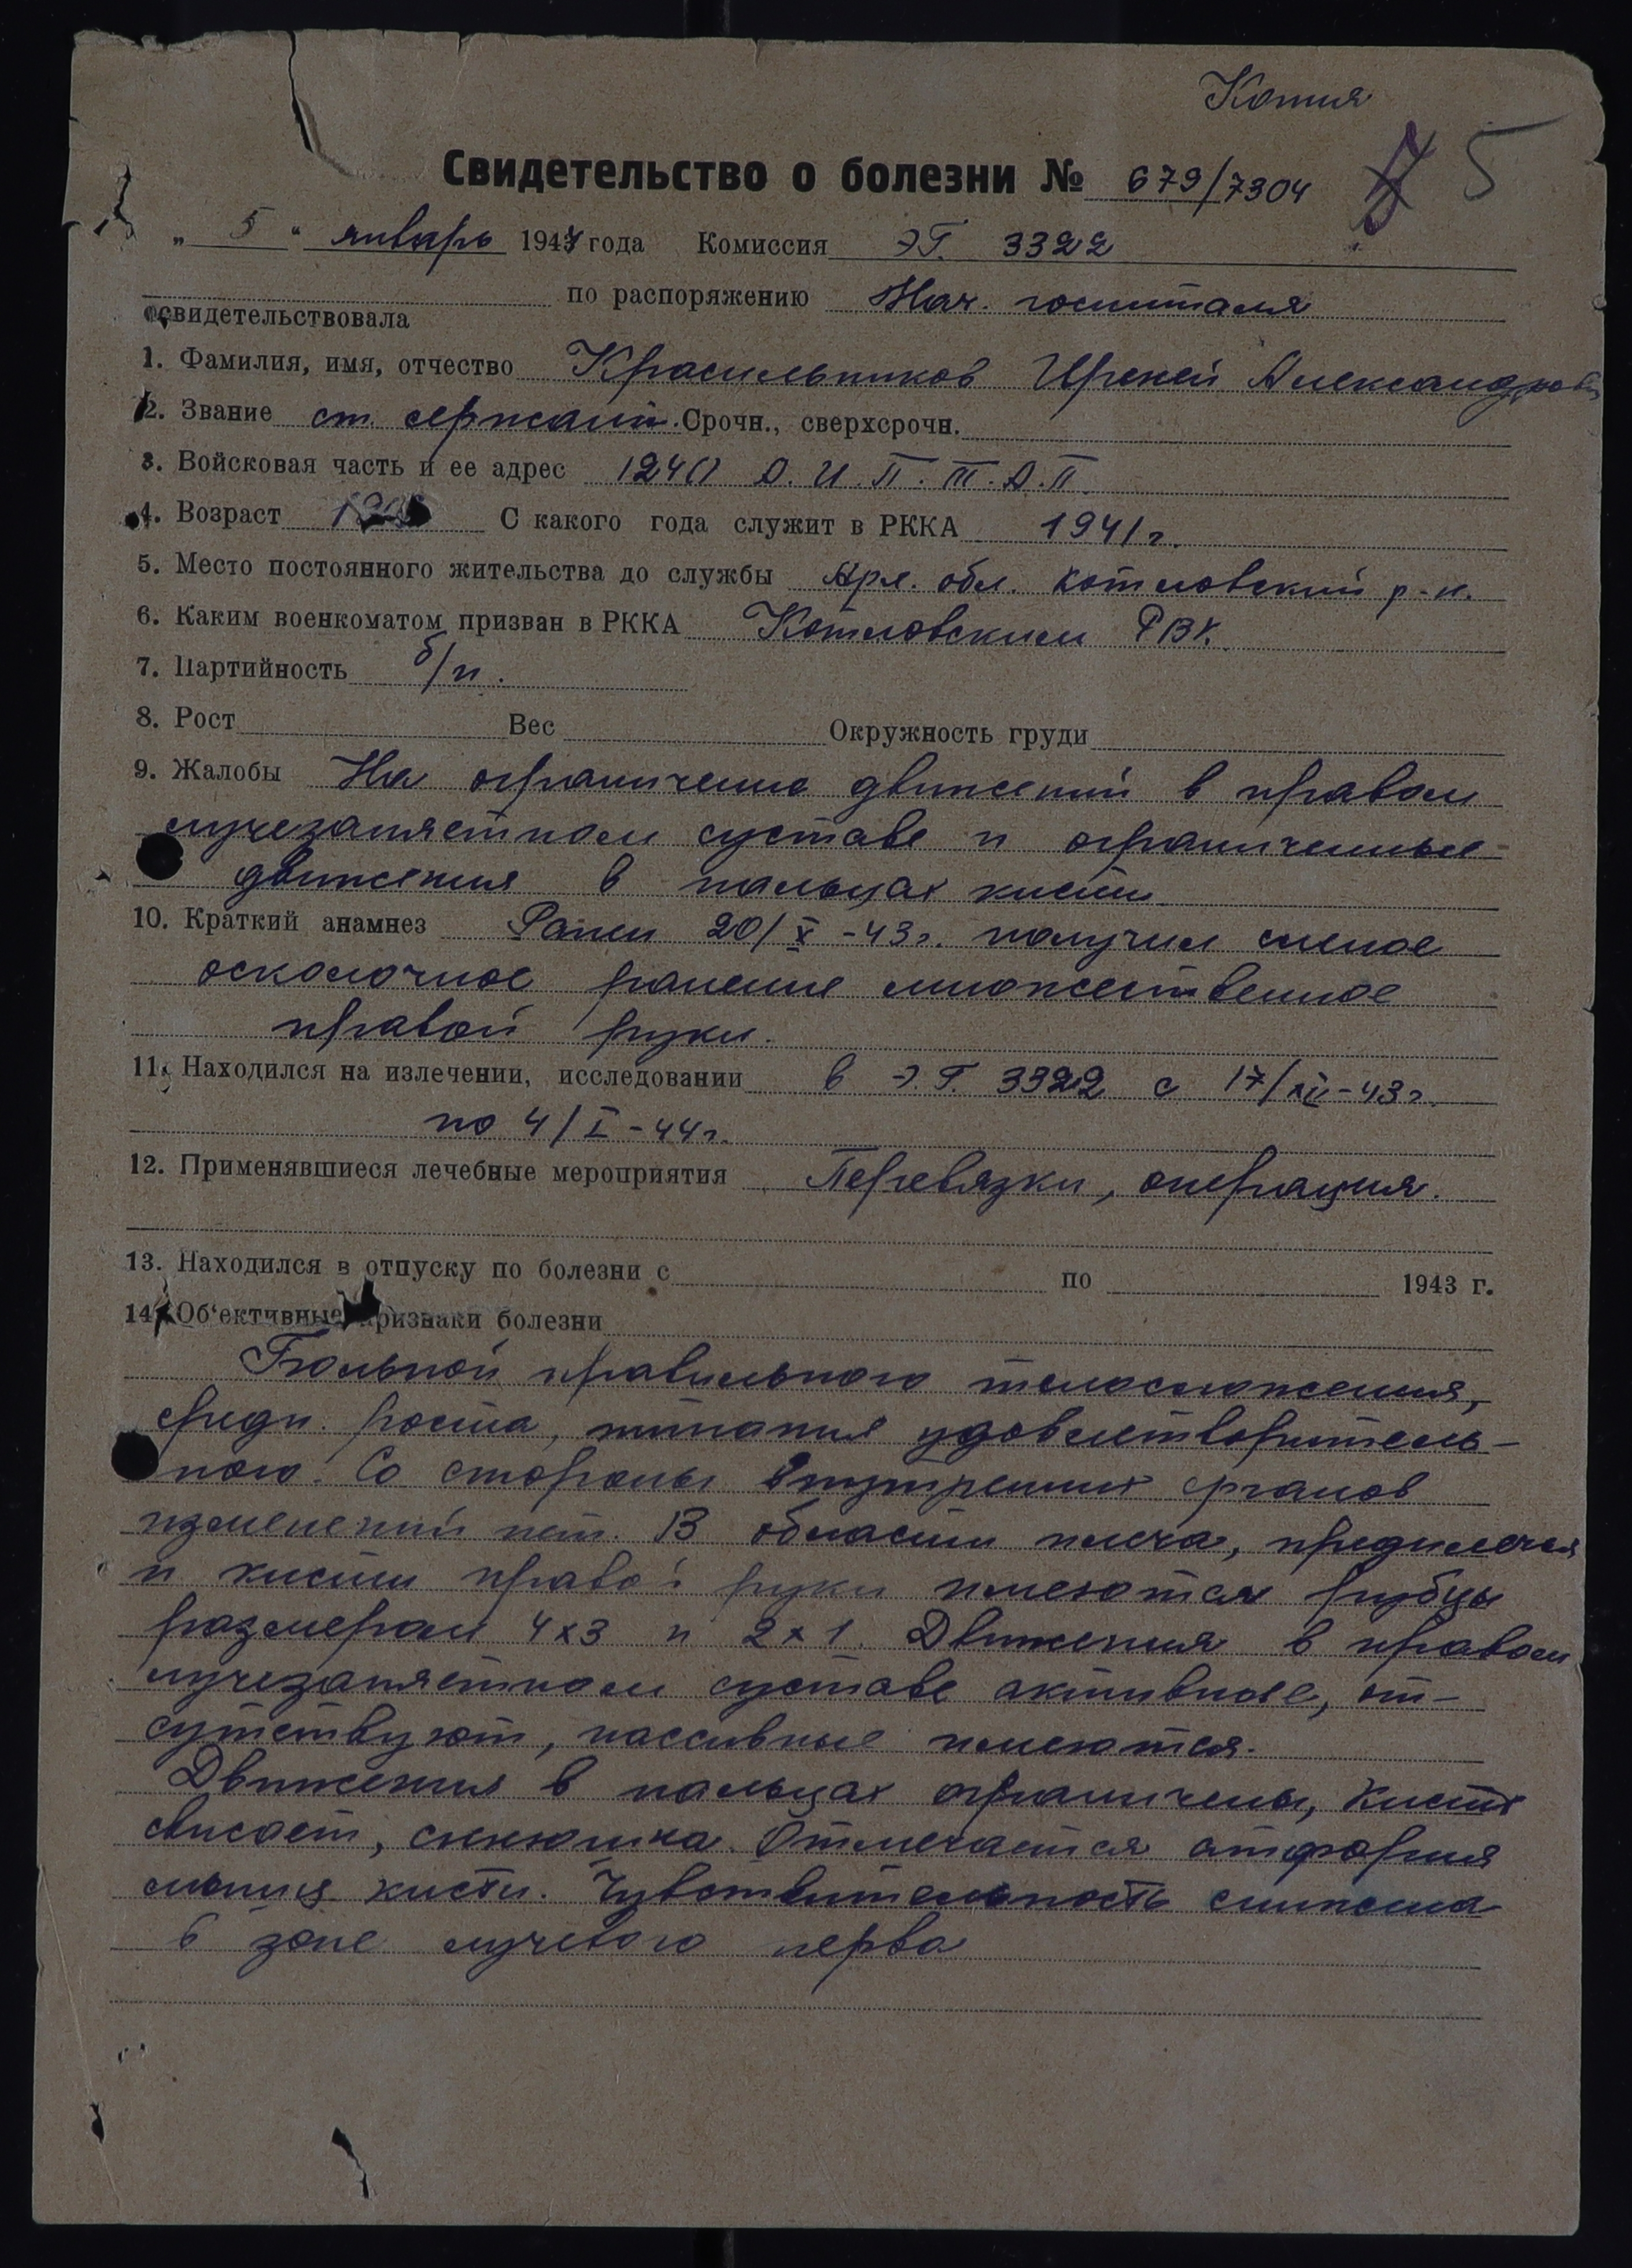 Копия
Свидетельство о болезни № 679/7304 5
„ 5 “ январь 1944 года Комиссия ЭГ. 3322
по распоряжению Нач. госпиталя
освидетельствовала
1. Фамилия, имя, отчество Красильников Ирекей Александров
2. Звание ст. сержант. Срочн., сверхсрочн.
3. Войсковая часть и ее адрес 1240 А. И. П. Т. А. П.
4. Возраст С какого года служит в РККА 1941 г.
5. Место постоянного жительства до службы Арх. обл. Котловский р-н.
6. Каким военкоматом призван в РККА Котловским РВК.
7. Партийность б/п.
8. Рост Вес Окружность груди
9. Жалобы На ограничение движений в правом
лучезапястном суставе и ограниченные
движения в пальцах кисти
10. Краткий анамнез Ранен 20/X-43г. получил слепое
осколочное ранение множественное
правой руки.
11. Находился на излечении, исследовании в Э.Г. 3322 с 17/XII-43г.
по 4/I-44г.
12. Применявшиеся лечебные мероприятия Перевязки, операция.
13. Находился в отпуску по болезни с по 1943 г.
14. Об‘ективные признаки болезни
Больной правильного телосложения,
средн. роста, питания удовлетворитель-
ного. Со стороны внутренних органов
изменений нет. В области плеча, предплечья
и кисти правой руки имеются рубцы
размером 4х3 и 2х1. Движения в правом
лучезапястном суставе активные, от-
сутствуют, пассивные имеются.
Движения в пальцах ограничены, кисть
свисает, синюшна. Отмечается атрофия
мышц кисти. Чувствительность снижена
в зоне лучевого нерва